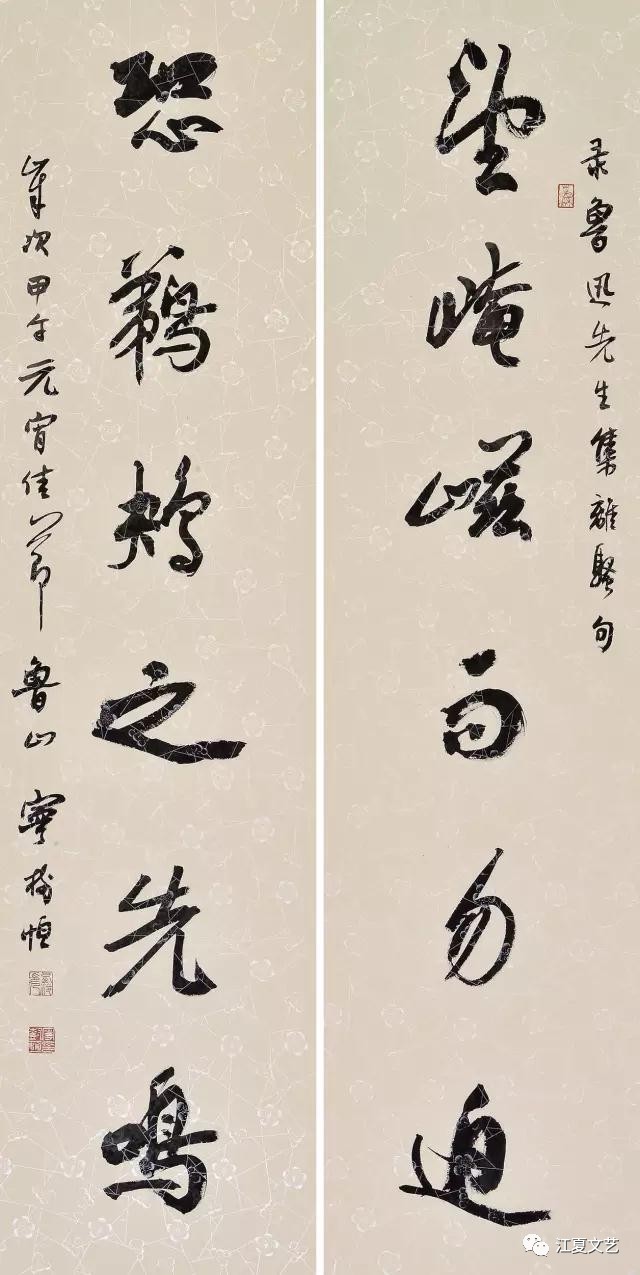 录鲁迅先生集离骚句
望崦嵫而勿迫
恐鹈鴂之先鸣
岁次甲午元宵佳节 鲁山
江夏文艺